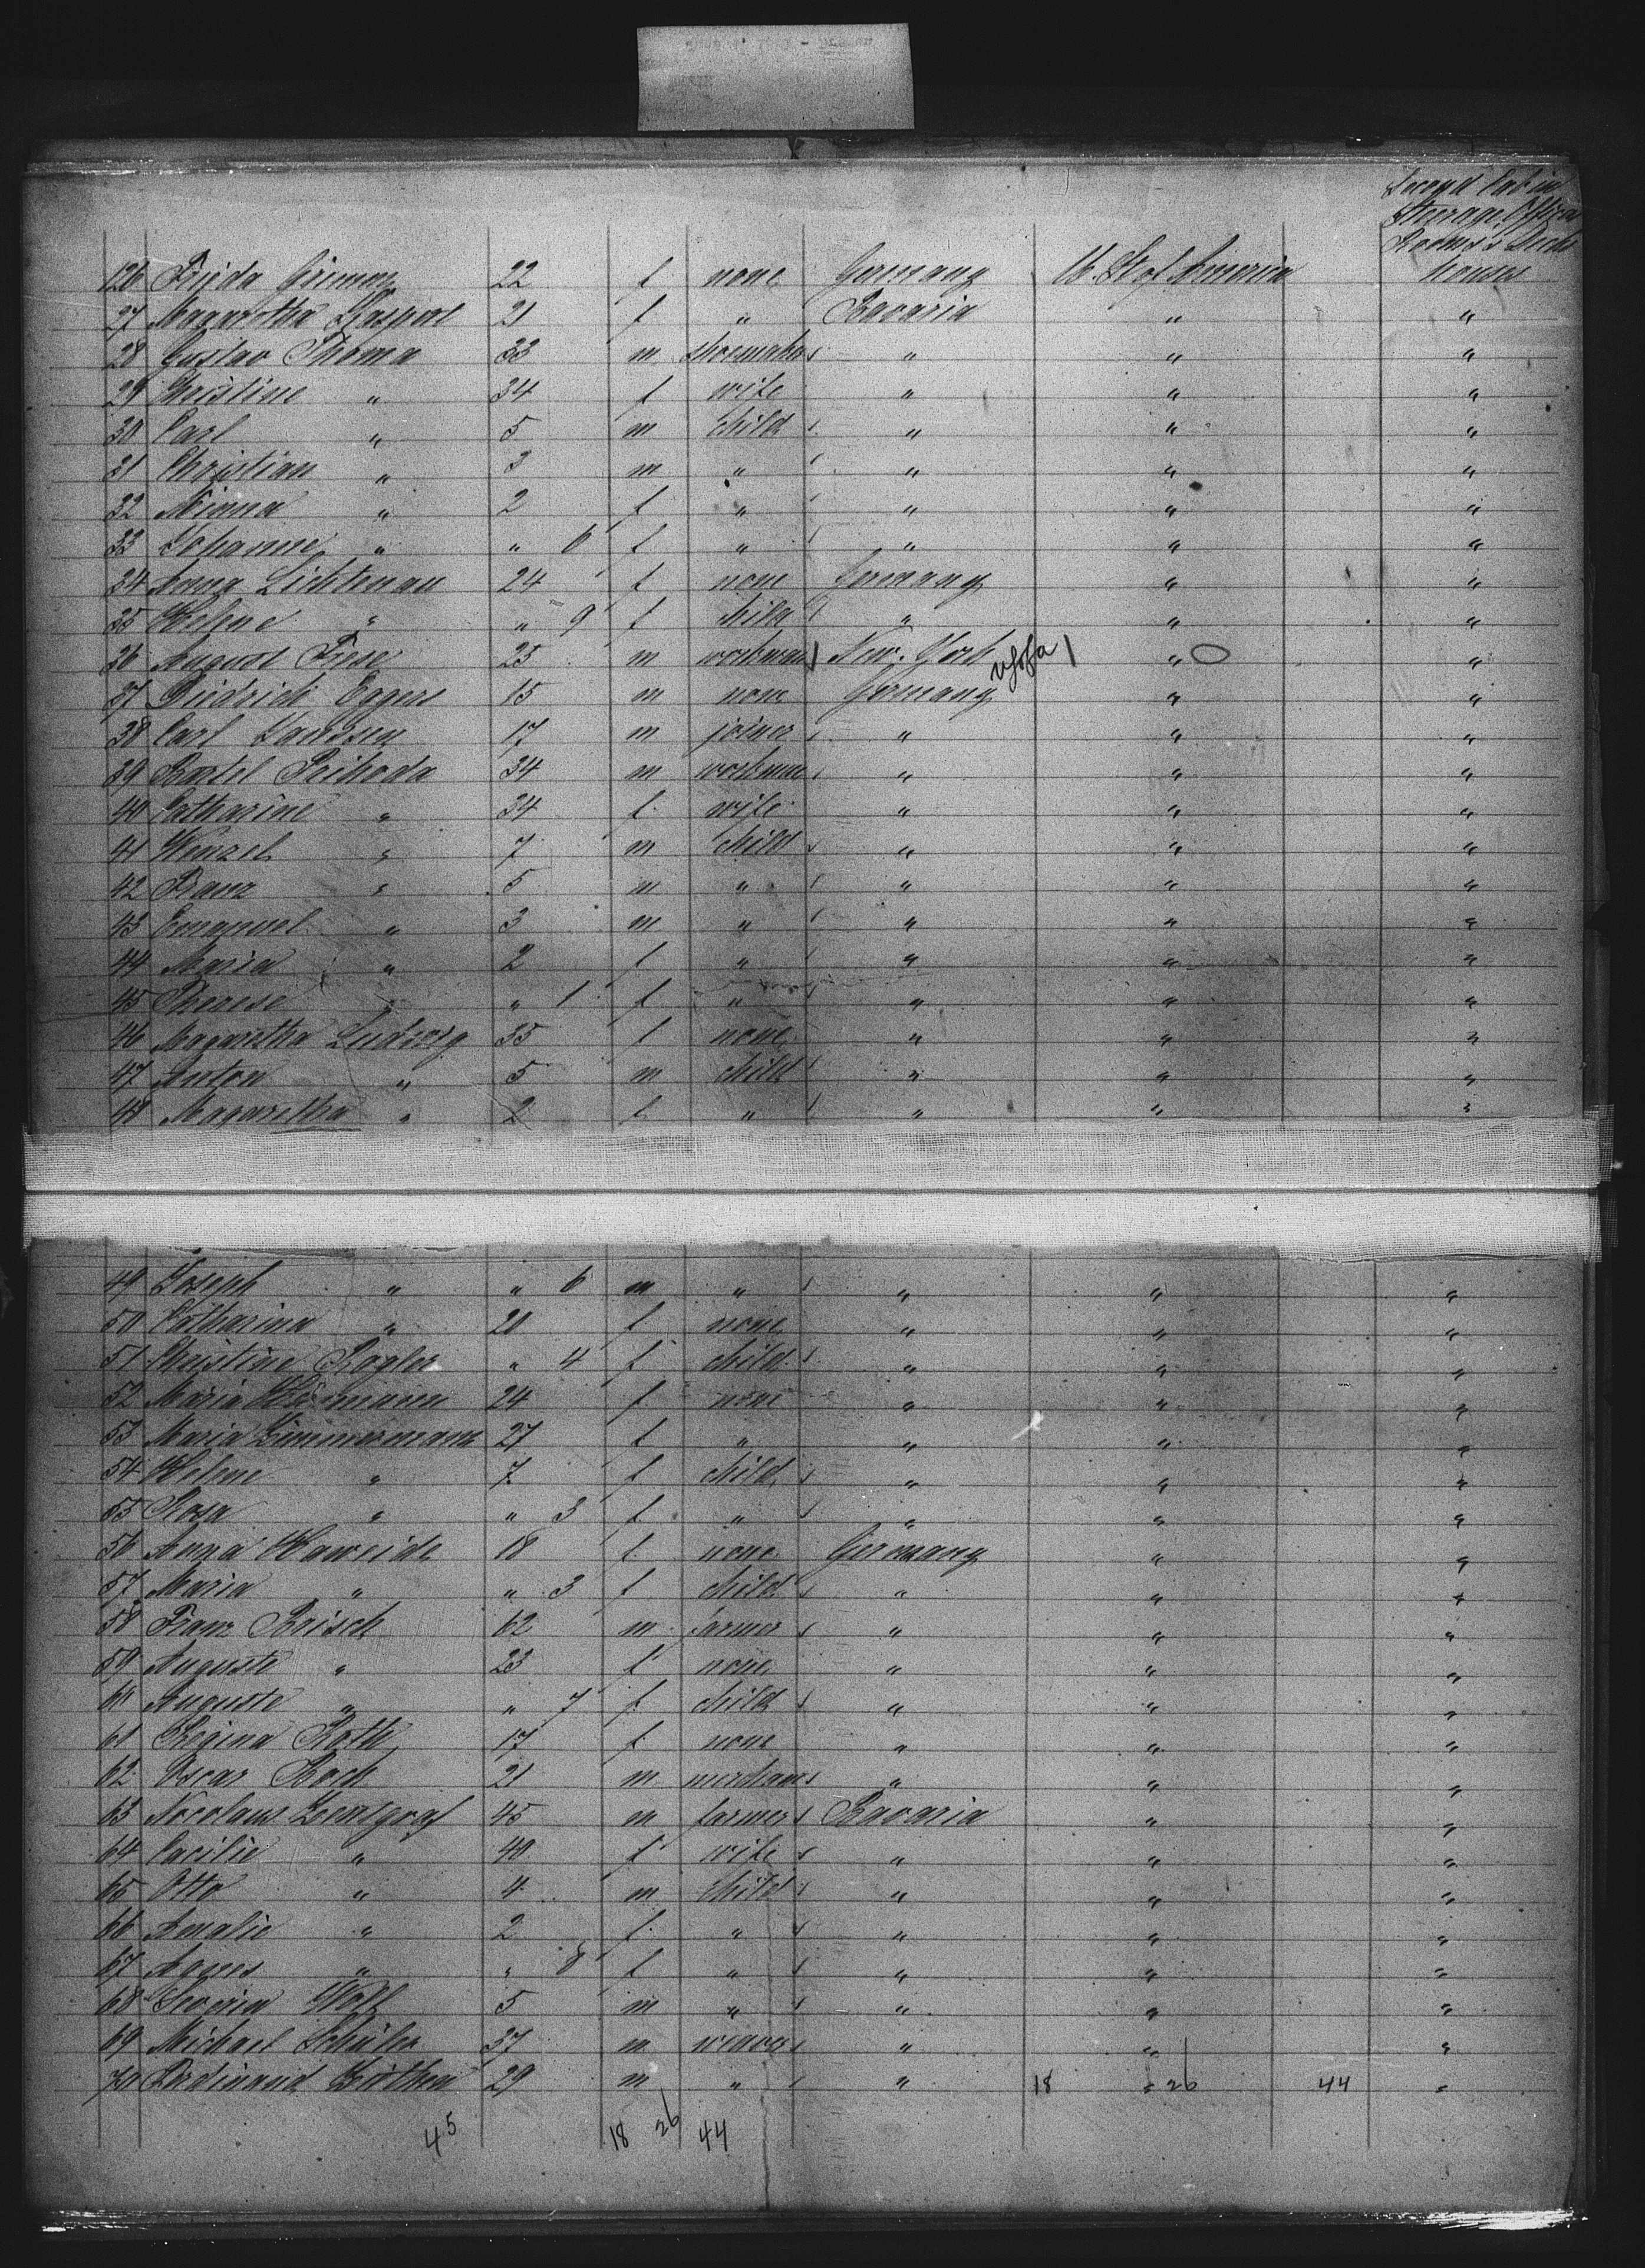 Second Cabin
Steerage, Office
Rooms & Deck
houses
126 Frieda Grimm 22 f none Germany U. St. of America
27 Magaretha Kaspart 21 f " Bavaria " "
28 Gustav Thoma 33 m shoemaker " " "
29 Christine " 34 f wife " " "
30 Carl " 5 m child " " "
31 Christian " 3 m " " " "
32 Minna " 2 f " " " "
33 Johanne " " 6 f " " " "
34 Anna Lichtenau 24 f none Germany " "
35 Helene " " 9 f child " " "
36 August Fiese 25 m workman New-York " "
USofA
37 Diedrich Eggers 15 m none Germany " "
38 Carl Janssen 17 m joiner " " "
39 Bartel Prihoda 34 m workman " " "
40 Catharine " 34 f wife " " "
41 Wenzel " 7 m child " " "
42 Franz " 5 m " " " "
43 Emanuel " 3 m " " " "
44 Maria " 2 f " " " "
45 Therese " " 1 f " " " "
46 Magaretha Ludwig 35 f none " " "
47 Anton " 5 m child " " "
48 Magaretha " 2 f " " " "
49 Joseph " " 6 m " " " "
50 Catharina " 20 f none " " "
51 Christine Rogler " 4 f child " " "
52 Maria 24 f none " " "
53 Maria Zimmermann 27 f " " " "
54 Helene " 7 f child " " "
55 Rosa " " 3 f " " " "
56 Anna Haweide 18 f none Germany " "
57 Maria " " 3 f child " " "
58 Franz Reisch 62 m farmer " " "
59 Auguste " 23 f none " " "
60 Auguste " " 7 f child " " "
61 Regina Roth 17 f none " " "
62 Oscar Koch 21 m merchant " " "
63 Nicolaus 45 m farmer Bavaria " "
64 Cacilie " 40 f wife " " "
65 Otto " 4 m child " " "
66 Amalie " 2 f " " " "
67 Agnes " " 8 f " " " "
68 Wolf 5 m " " " "
69 Michael Schüler 37 m weaver " " "
70 Ferdinand 29 m " " 18 " 26 44 "
45 18 26 44